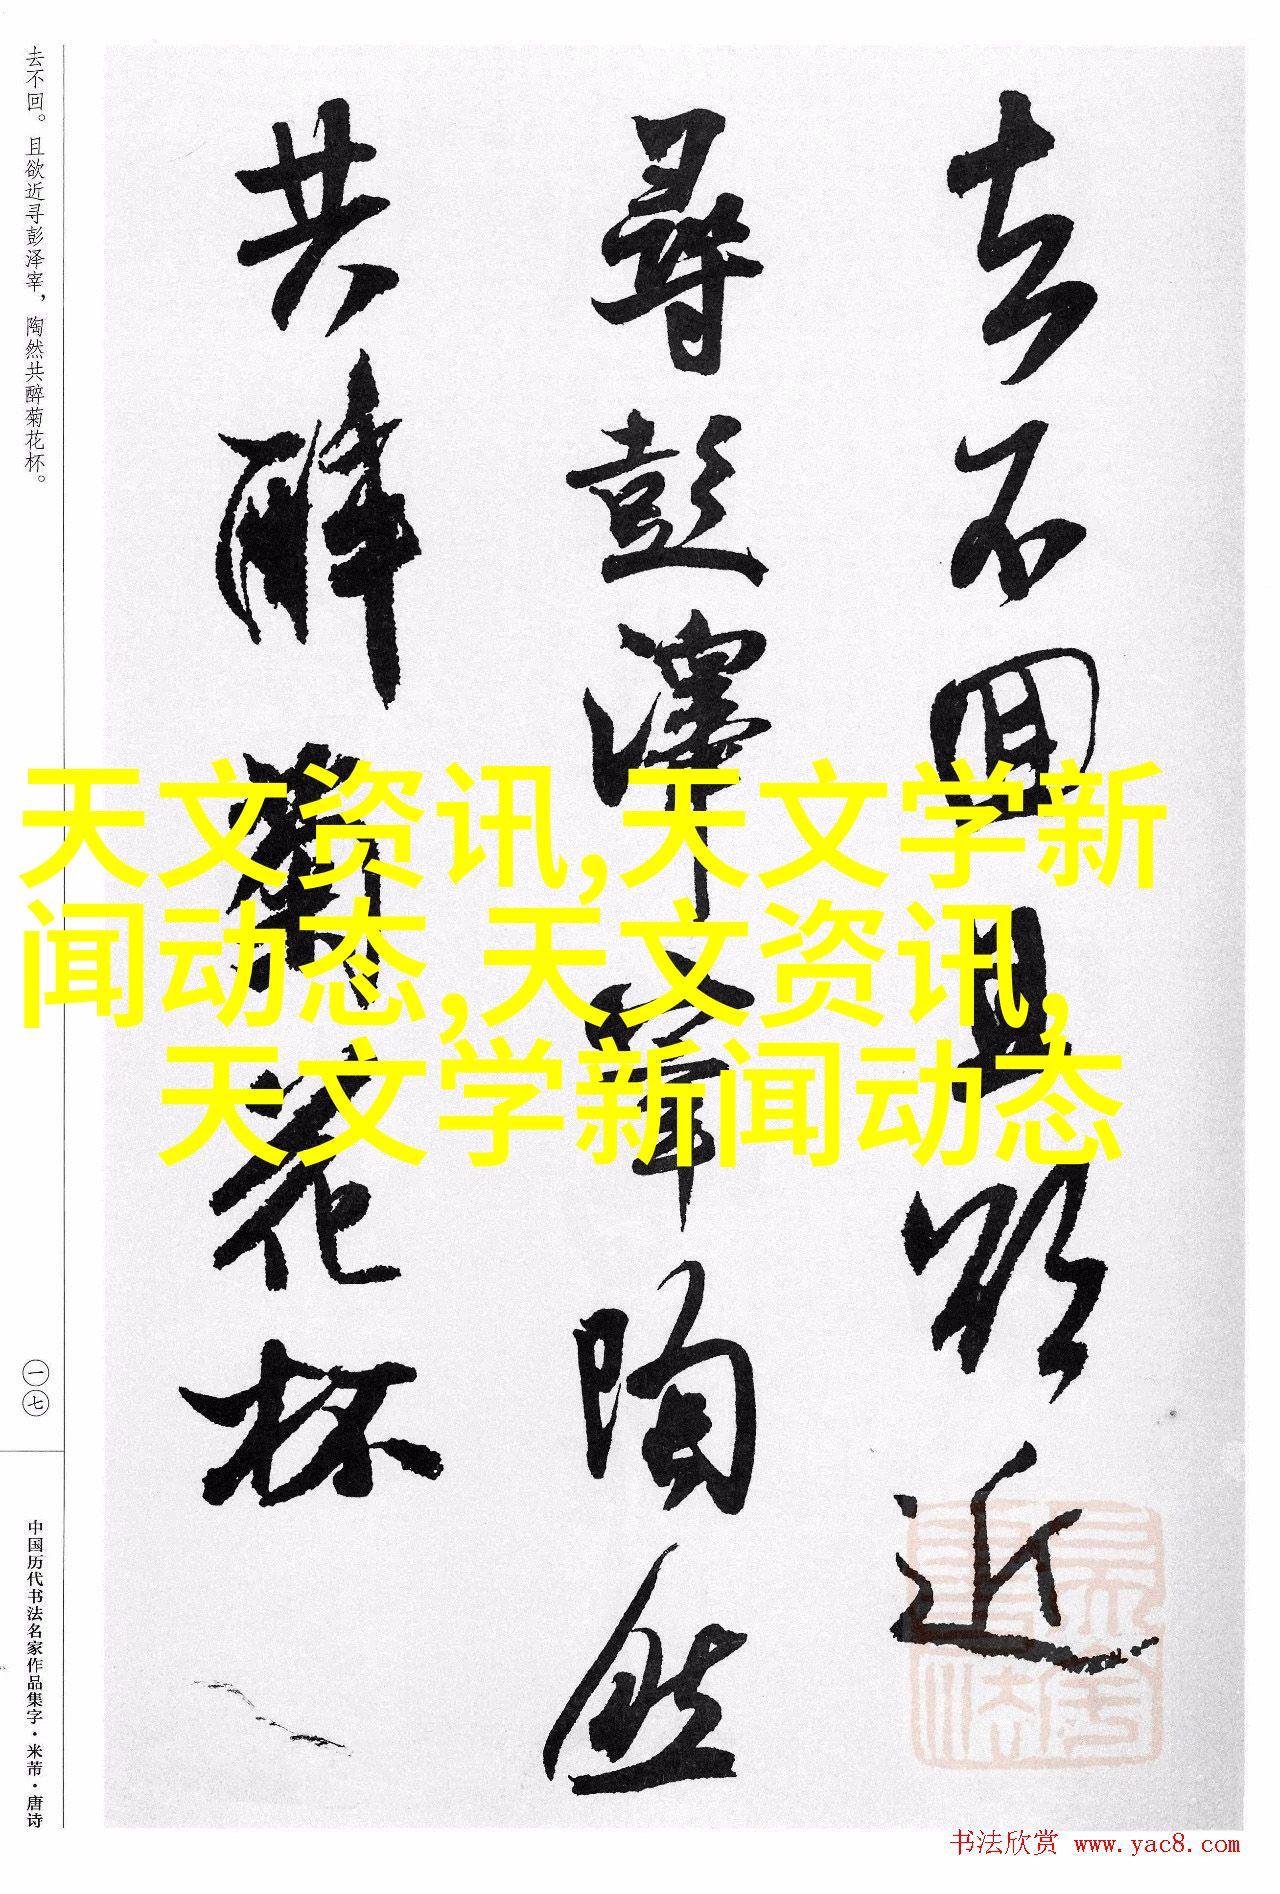 去不回且欲近
尋彭澤宰陶然
共醉菊花杯
去不回。且欲近寻彭泽宰，陶然共醉菊花杯。
一七
中国历代书法名家作品集字·米芾·唐诗
天文资讯,天文学新
闻动态,天文资讯,
天文学新闻动态
书法欣赏 www.yac8.com